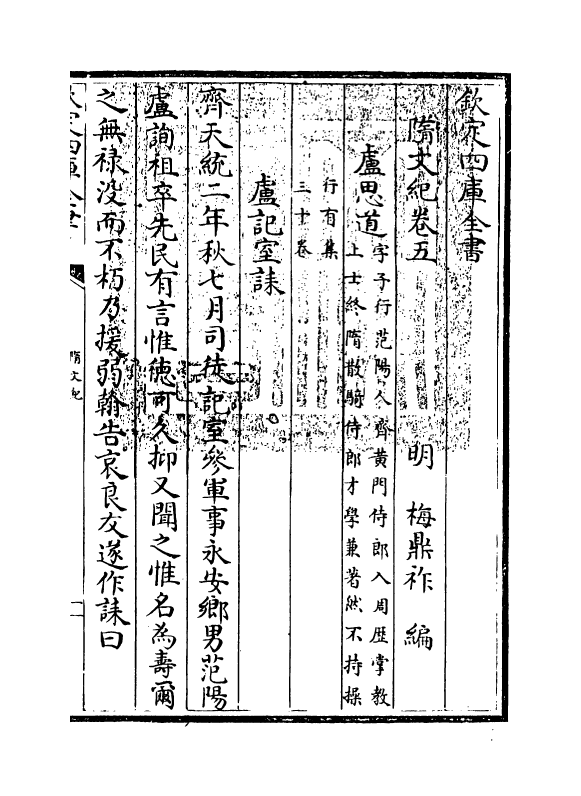 欽定四庫全書
隋文紀卷五
明 梅鼎祚 編
盧思道字子行范陽人齊黃門侍郎入周歷掌教
上士終隋散騎侍郎才學兼著然不持操
行有集
三十卷
盧記室誄
齊天統二年秋七月司徒記室參軍事永安鄉男范陽
盧詢祖卒先民有言惟德可久抑又聞之惟名為壽爾
之無祿没而不朽乃援弱翰告哀良友遂作誄曰
欽定四庫全書
隋文紀
一